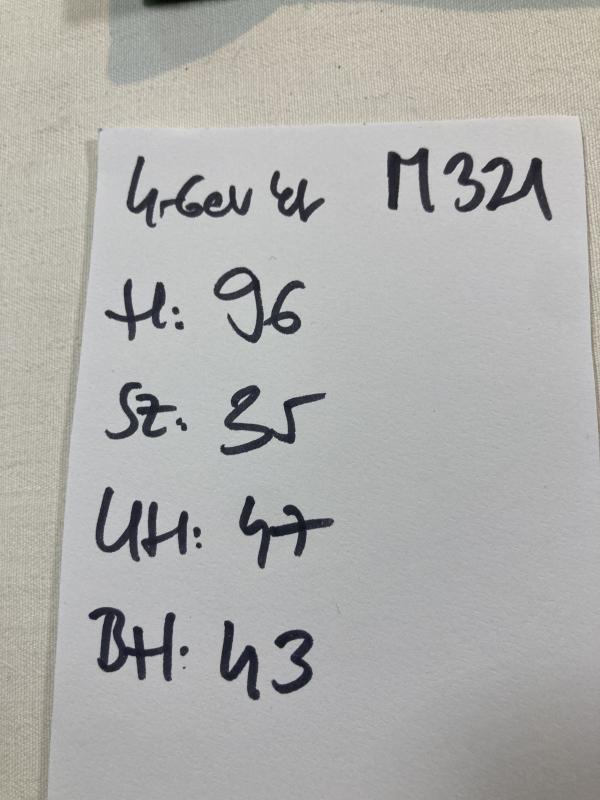 M321
H: 96
Sz: 35
UH: 47
BH: 43